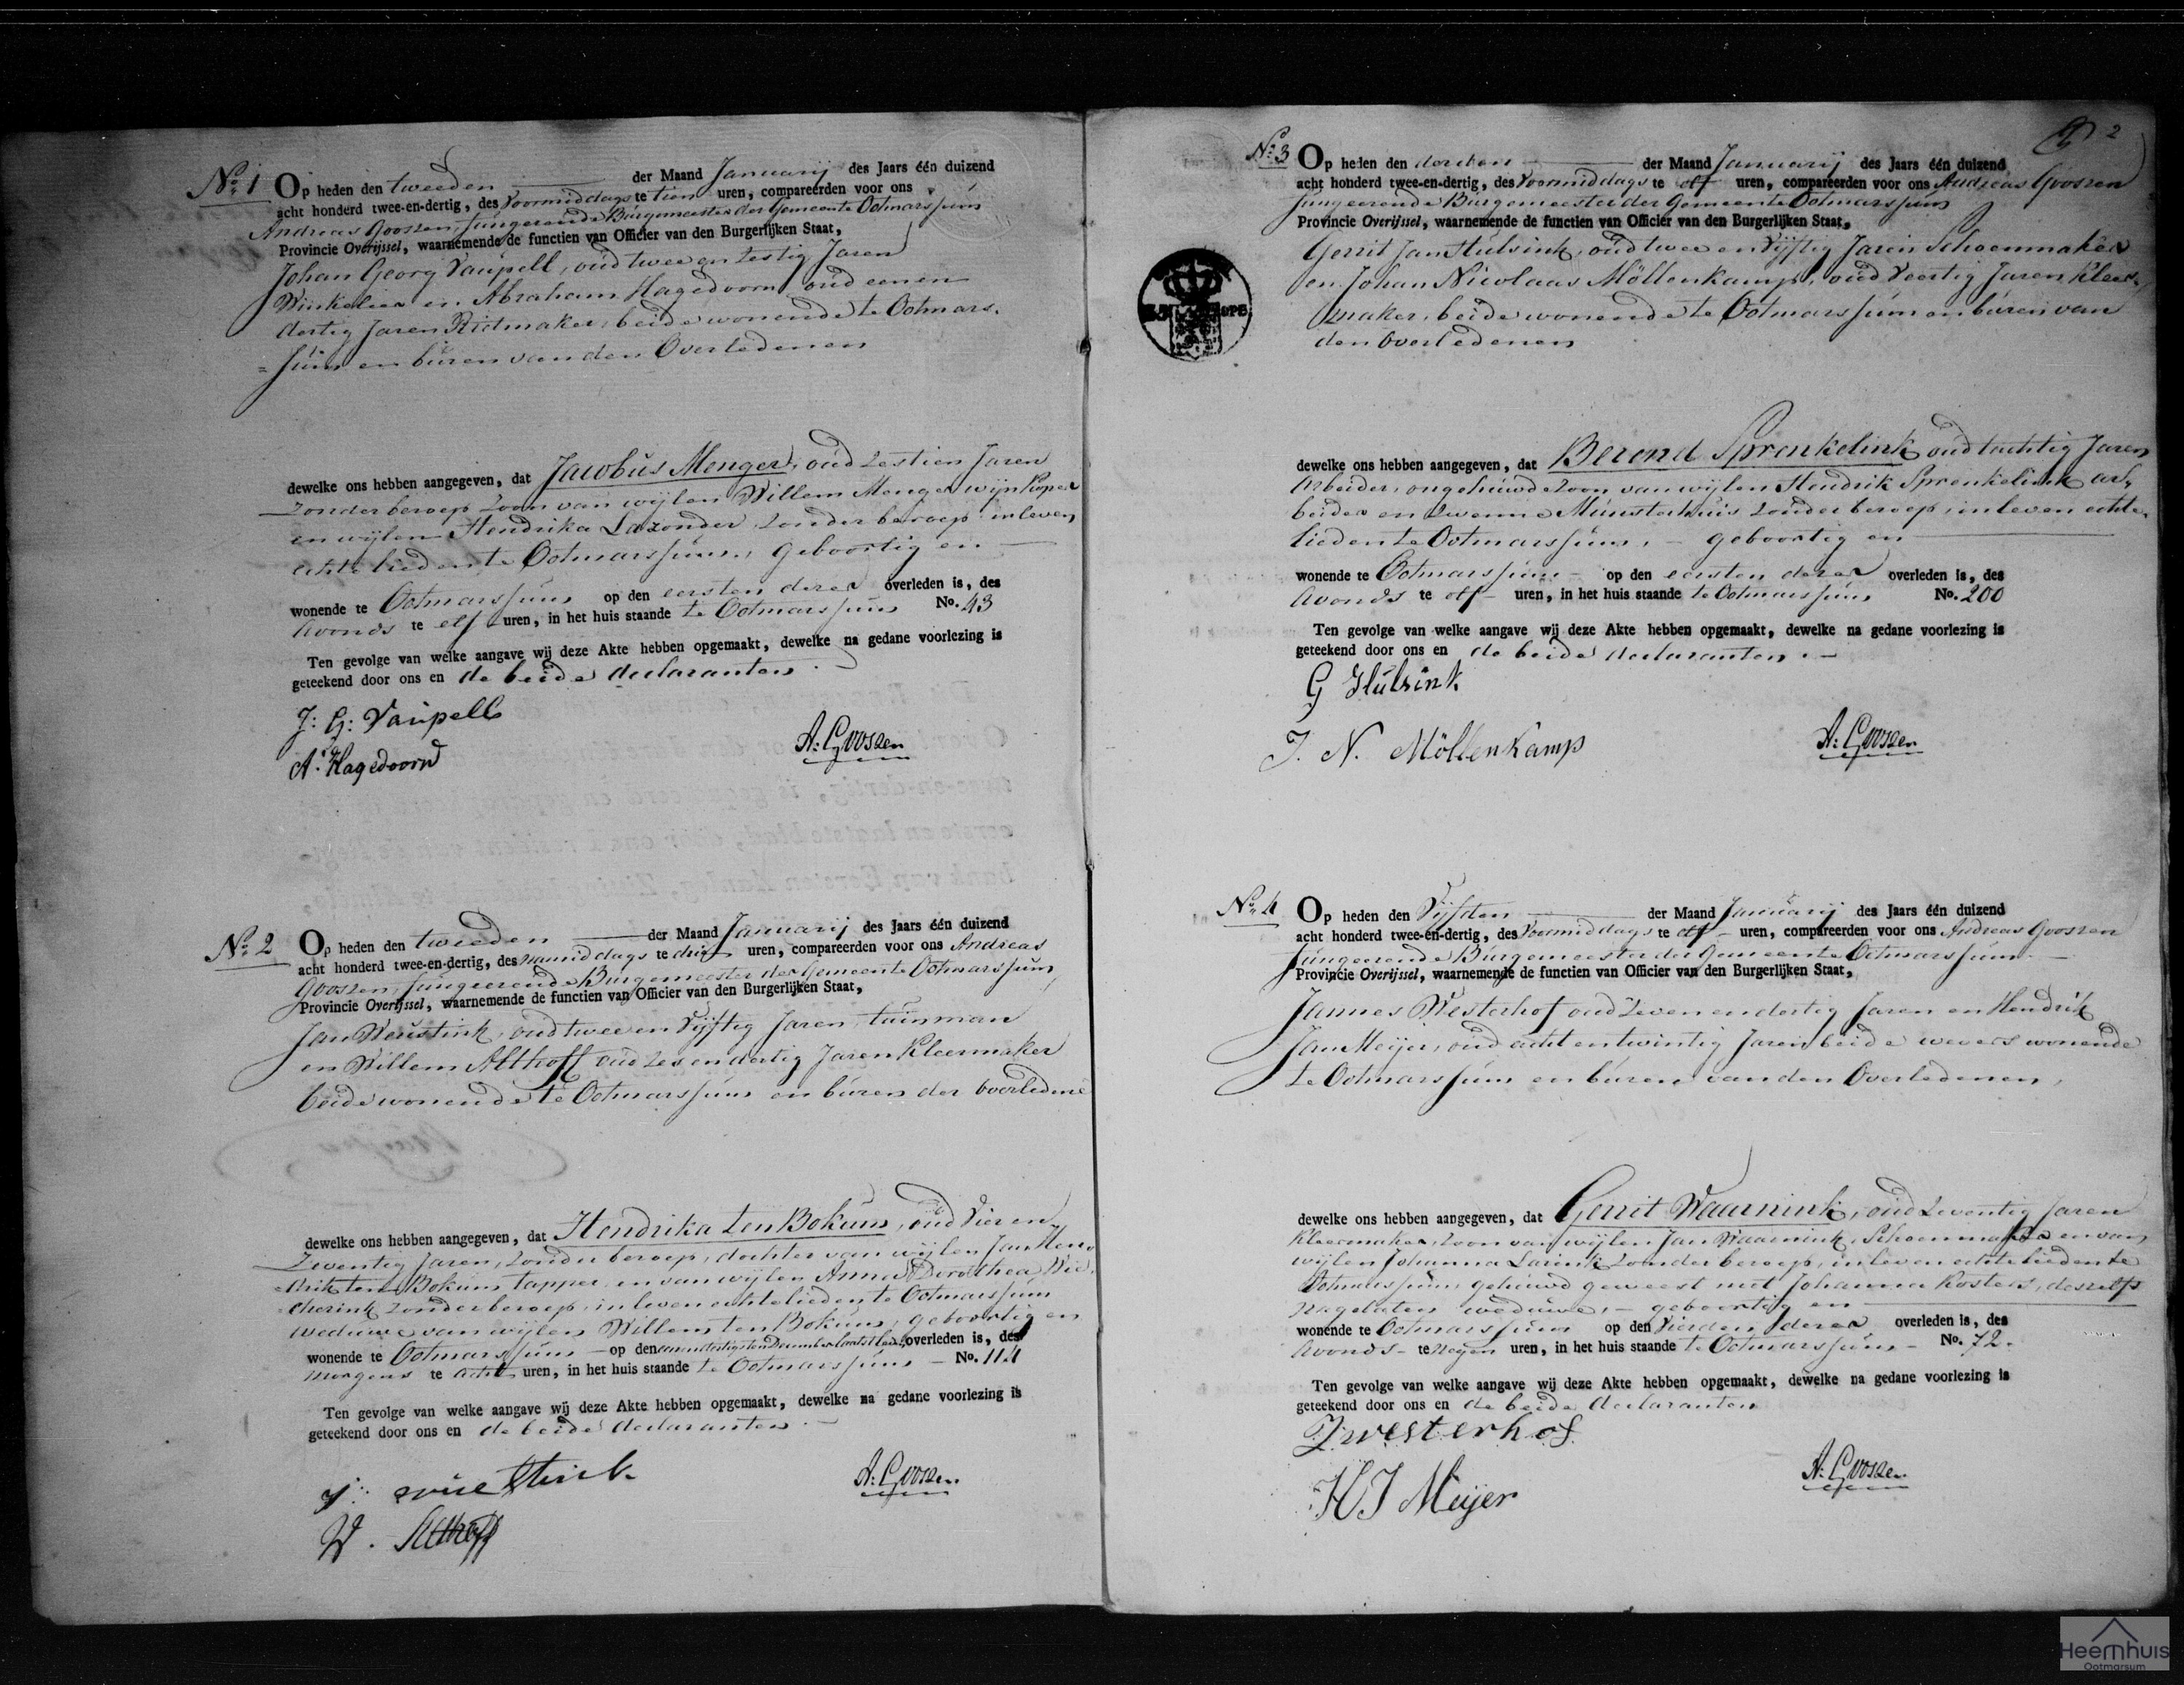 No. 1 Op heden den tweeden der Maand Januarij des Jaars één duizend
acht honderd twee-en-dertig, des Voormiddags te tien uren, compareerden voor ons
Andreas Goossen, fungerende Burgemeester der Gemeente Ootmarssum
Provincie Overijssel, waarnemende de functien van Officier van den Burgerlijken Staat,
Johan Georg Vaupell, oud twee en zestig Jaren
Winkelier en Abraham Hagedoorn oud een en
dertig Jaren Rietmaker, beide wonende te Ootmars-
=sum en buren van den Overledenen
dewelke ons hebben aangegeven, dat Jacobus Menger, oud zestien Jaren
zonder beroep zoon van wijlen Willem Menger wijnkoper
en wijlen Hendrika Lazonder zonder beroep in leven
echtelieden te Ootmarssum, geboortig en
wonende te Ootmarssum op den eersten dezer overleden is, des
Avonds te elf uren, in het huis staande te Ootmarssum No. 43
Ten gevolge van welke aangave wij deze Akte hebben opgemaakt, dewelke na gedane voorlezing is
geteekend door ons en de beide declaranten.
J: G: Vaupell
A. Hagedoorn
A: Goossen
No. 2 Op heden den tweeden der Maand Januarij des Jaars één duizend
acht honderd twee-en-dertig, des namiddags te drie uren, compareerden voor ons Andreas
Goossen, fungeerende Burgemeester der Gemeente Ootmarssum,
Provincie Overijssel, waarnemende de functien van Officier van den Burgerlijken Staat,
Jan Weustink, oud twee en Vijftig Jaren, tuinman
en Willem Althoff oud zes en dertig Jaren Kleermaker
beide wonende te Ootmarssum en buren der overledene
dewelke ons hebben aangegeven, dat Hendrika ten Bokum, oud Vier en
Zeventig Jaren, zonder beroep, dochter van wijlen Jan Hen-
=drik ten Bokum tapper en van wijlen Anna Dorothea
zonder beroep, in leven echtelieden te Ootmarssum
weduwe van wijlen Willem ten Bokum, geboortig en
wonende te Ootmarssum op den eenendertigsten December laatstleden, overleden is, des
morgens te acht uren, in het huis staande te Ootmarssum No. 114
Ten gevolge van welke aangave wij deze Akte hebben opgemaakt, dewelke na gedane voorlezing is
geteekend door ons en de beide declaranten.
A: Goossen
W. Althoff
2
No. 3 Op heden den derden der Maand Januarij des Jaars één duizend
acht honderd twee-en-dertig, des Voormiddags te elf uren, compareerden voor ons Andreas Goossen
fungeerende Burgemeester der Gemeente Ootmarssum
Provincie Overijssel, waarnemende de functien van Officier van den Burgerlijken Staat,
Gerrit Jan Hulsink, oud twee en Vijftig Jaren Schoenmaker
en Johan Nicolaas Möllenkamp, oud Veertig Jaren Kleer-
maker, beide wonende te Ootmarssum en buren van
den Overledenen
dewelke ons hebben aangegeven, dat Berend Sprenkelink oud tachtig Jaren
Arbeider, ongehuwde zoon van wijlen Hendrik Sprenkelink ar-
beider en Zwenne Munsterhuis zonder beroep, in leven echte-
lieden te Ootmarssum, geboortig en
wonende te Ootmarssum op den eersten dezer overleden is, des
Avonds te elf uren, in het huis staande te Ootmarssum No. 200
Ten gevolge van welke aangave wij deze Akte hebben opgemaakt, dewelke na gedane voorlezing is
geteekend door ons en de beide declaranten.
G Hulsink
J. N. Möllenkamp
A: Goossen
No. 4 Op heden den Vijfden der Maand Januarij des Jaars één duizend
acht honderd twee-en-dertig, des Voormiddags te elf uren, compareerden voor ons Andreas Goossen
fungeerende Burgemeester der Gemeente Ootmarssum
Provincie Overijssel, waarnemende de functien van Officier van den Burgerlijken Staat,
Jannes Westerhof oud zeven en dertig Jaren en Hendrik
Jan Meijer, oud acht en twintig Jaren beide wevers wonende
te Ootmarssum en buren van den Overledenen,
dewelke ons hebben aangegeven, dat Gerrit Waarnink, oud Zeventig Jaren
Kleermaker, zoon van wijlen Jan Waarnink, Schoenmaker en van
wijlen Johanna Larink zonder beroep, in leven echtelieden te
Ootmarssum, gehuwd geweest met Johanna Kosters, deszelfs
nagelaten weduwe, geboortig en
wonende te Ootmarssum op den Vierden dezer overleden is, des
Avonds te negen uren, in het huis staande te Ootmarssum No. 72.
Ten gevolge van welke aangave wij deze Akte hebben opgemaakt, dewelke na gedane voorlezing is
geteekend door ons en de beide declaranten
J westerhof
H J Meijer
A: Goossen
Heemhuis
Ootmarsum